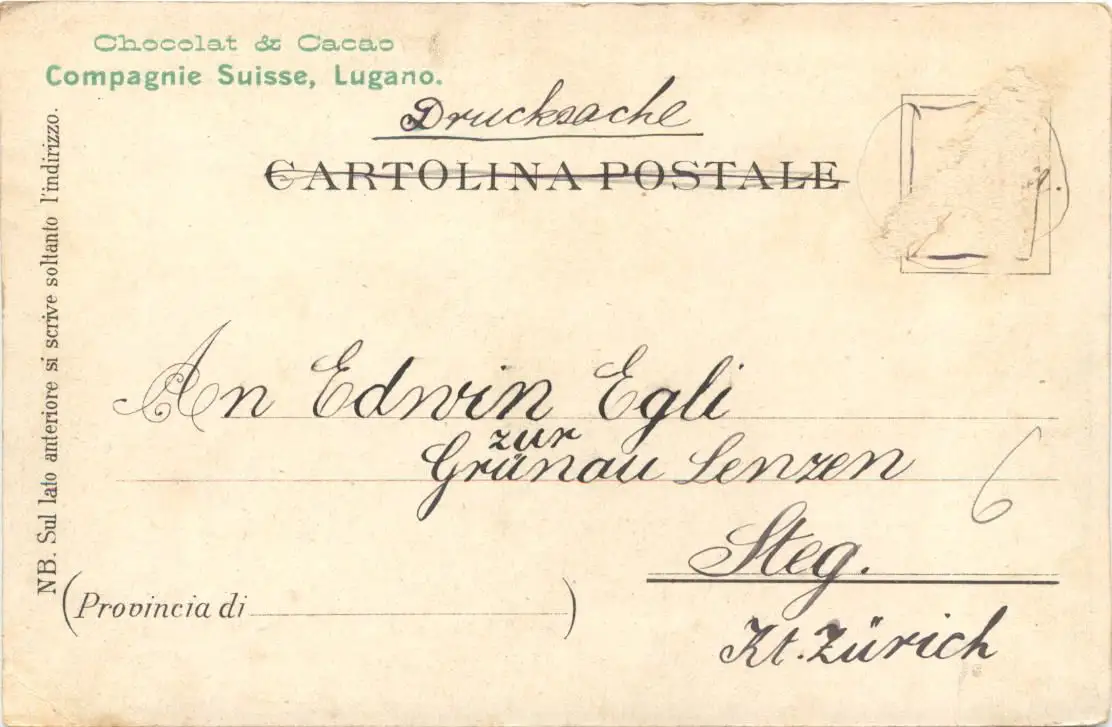 Chocolat & Cacao
Compagnie Suisse, Lugano.
Drucksache
CARTOLINA POSTALE
NB. Sul lato anteriore si scrive soltanto l'indirizzo.
An Edwin Egli
zur
Grünau Lenzen
6
Steg.
(Provincia di)
Kt. Zürich